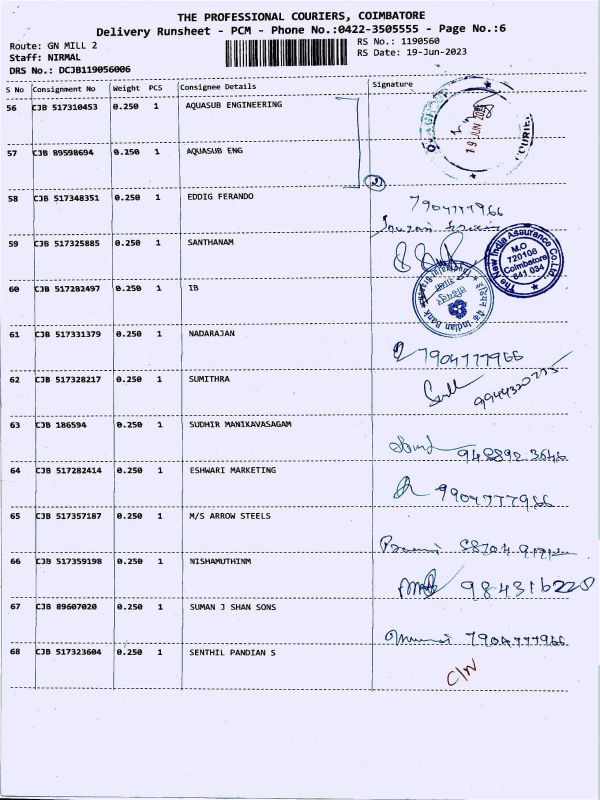 THE PROFESSIONAL COURIERS, COIMBATORE
Delivery Runsheet - PCM - Phone No.:0422-3505555 - Page No.:6
Route: GN MILL 2 RS No.: 1190560
Staff: NIRMAL RS Date: 19-Jun-2023
DRS No.: DCJB119056006
S No Consignment No Weight PCS Consignee Details Signature
56 CJB 517310453 0.250 1 AQUASUB ENGINEERING
19 JUN 2023
COURIER
57 CJB 89598694 0.250 1 AQUASUB ENG
2
58 CJB 517348351 0.250 1 EDDIG FERANDO 7904777966
59 CJB 517325885 0.250 1 SANTHANAM
The New India Assurance Co.Ltd.
M.O
720106
Coimbatore
641 034
60 CJB 517282497 0.250 1 IB
Indian Bank
61 CJB 517331379 0.250 1 NADARAJAN 7904777966
62 CJB 517328217 0.250 1 SUMITHRA
63 CJB 186594 0.250 1 SUDHIR MANIKAVASAGAM
64 CJB 517282414 0.250 1 ESHWARI MARKETING 9904777966
65 CJB 517357187 0.250 1 M/S ARROW STEELS
66 CJB 517359198 0.250 1 NISHAMUTHINM 984316220
67 CJB 89607020 0.250 1 SUMAN J SHAN SONS 7904777966
68 CJB 517323604 0.250 1 SENTHIL PANDIAN S